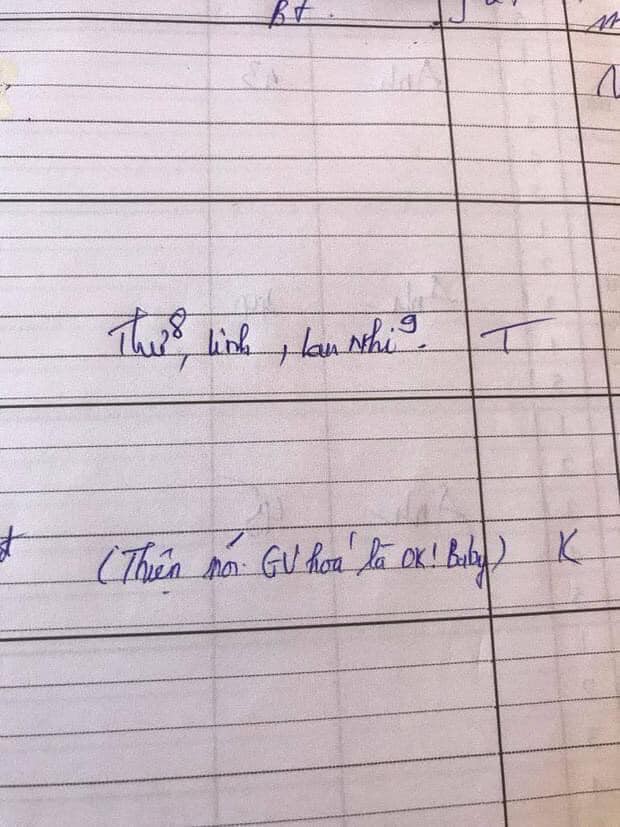 Bt.
Thư⁸, Linh, Lan Nhi⁹. T
(Thiện nói GV hoá là OK! Baby) K